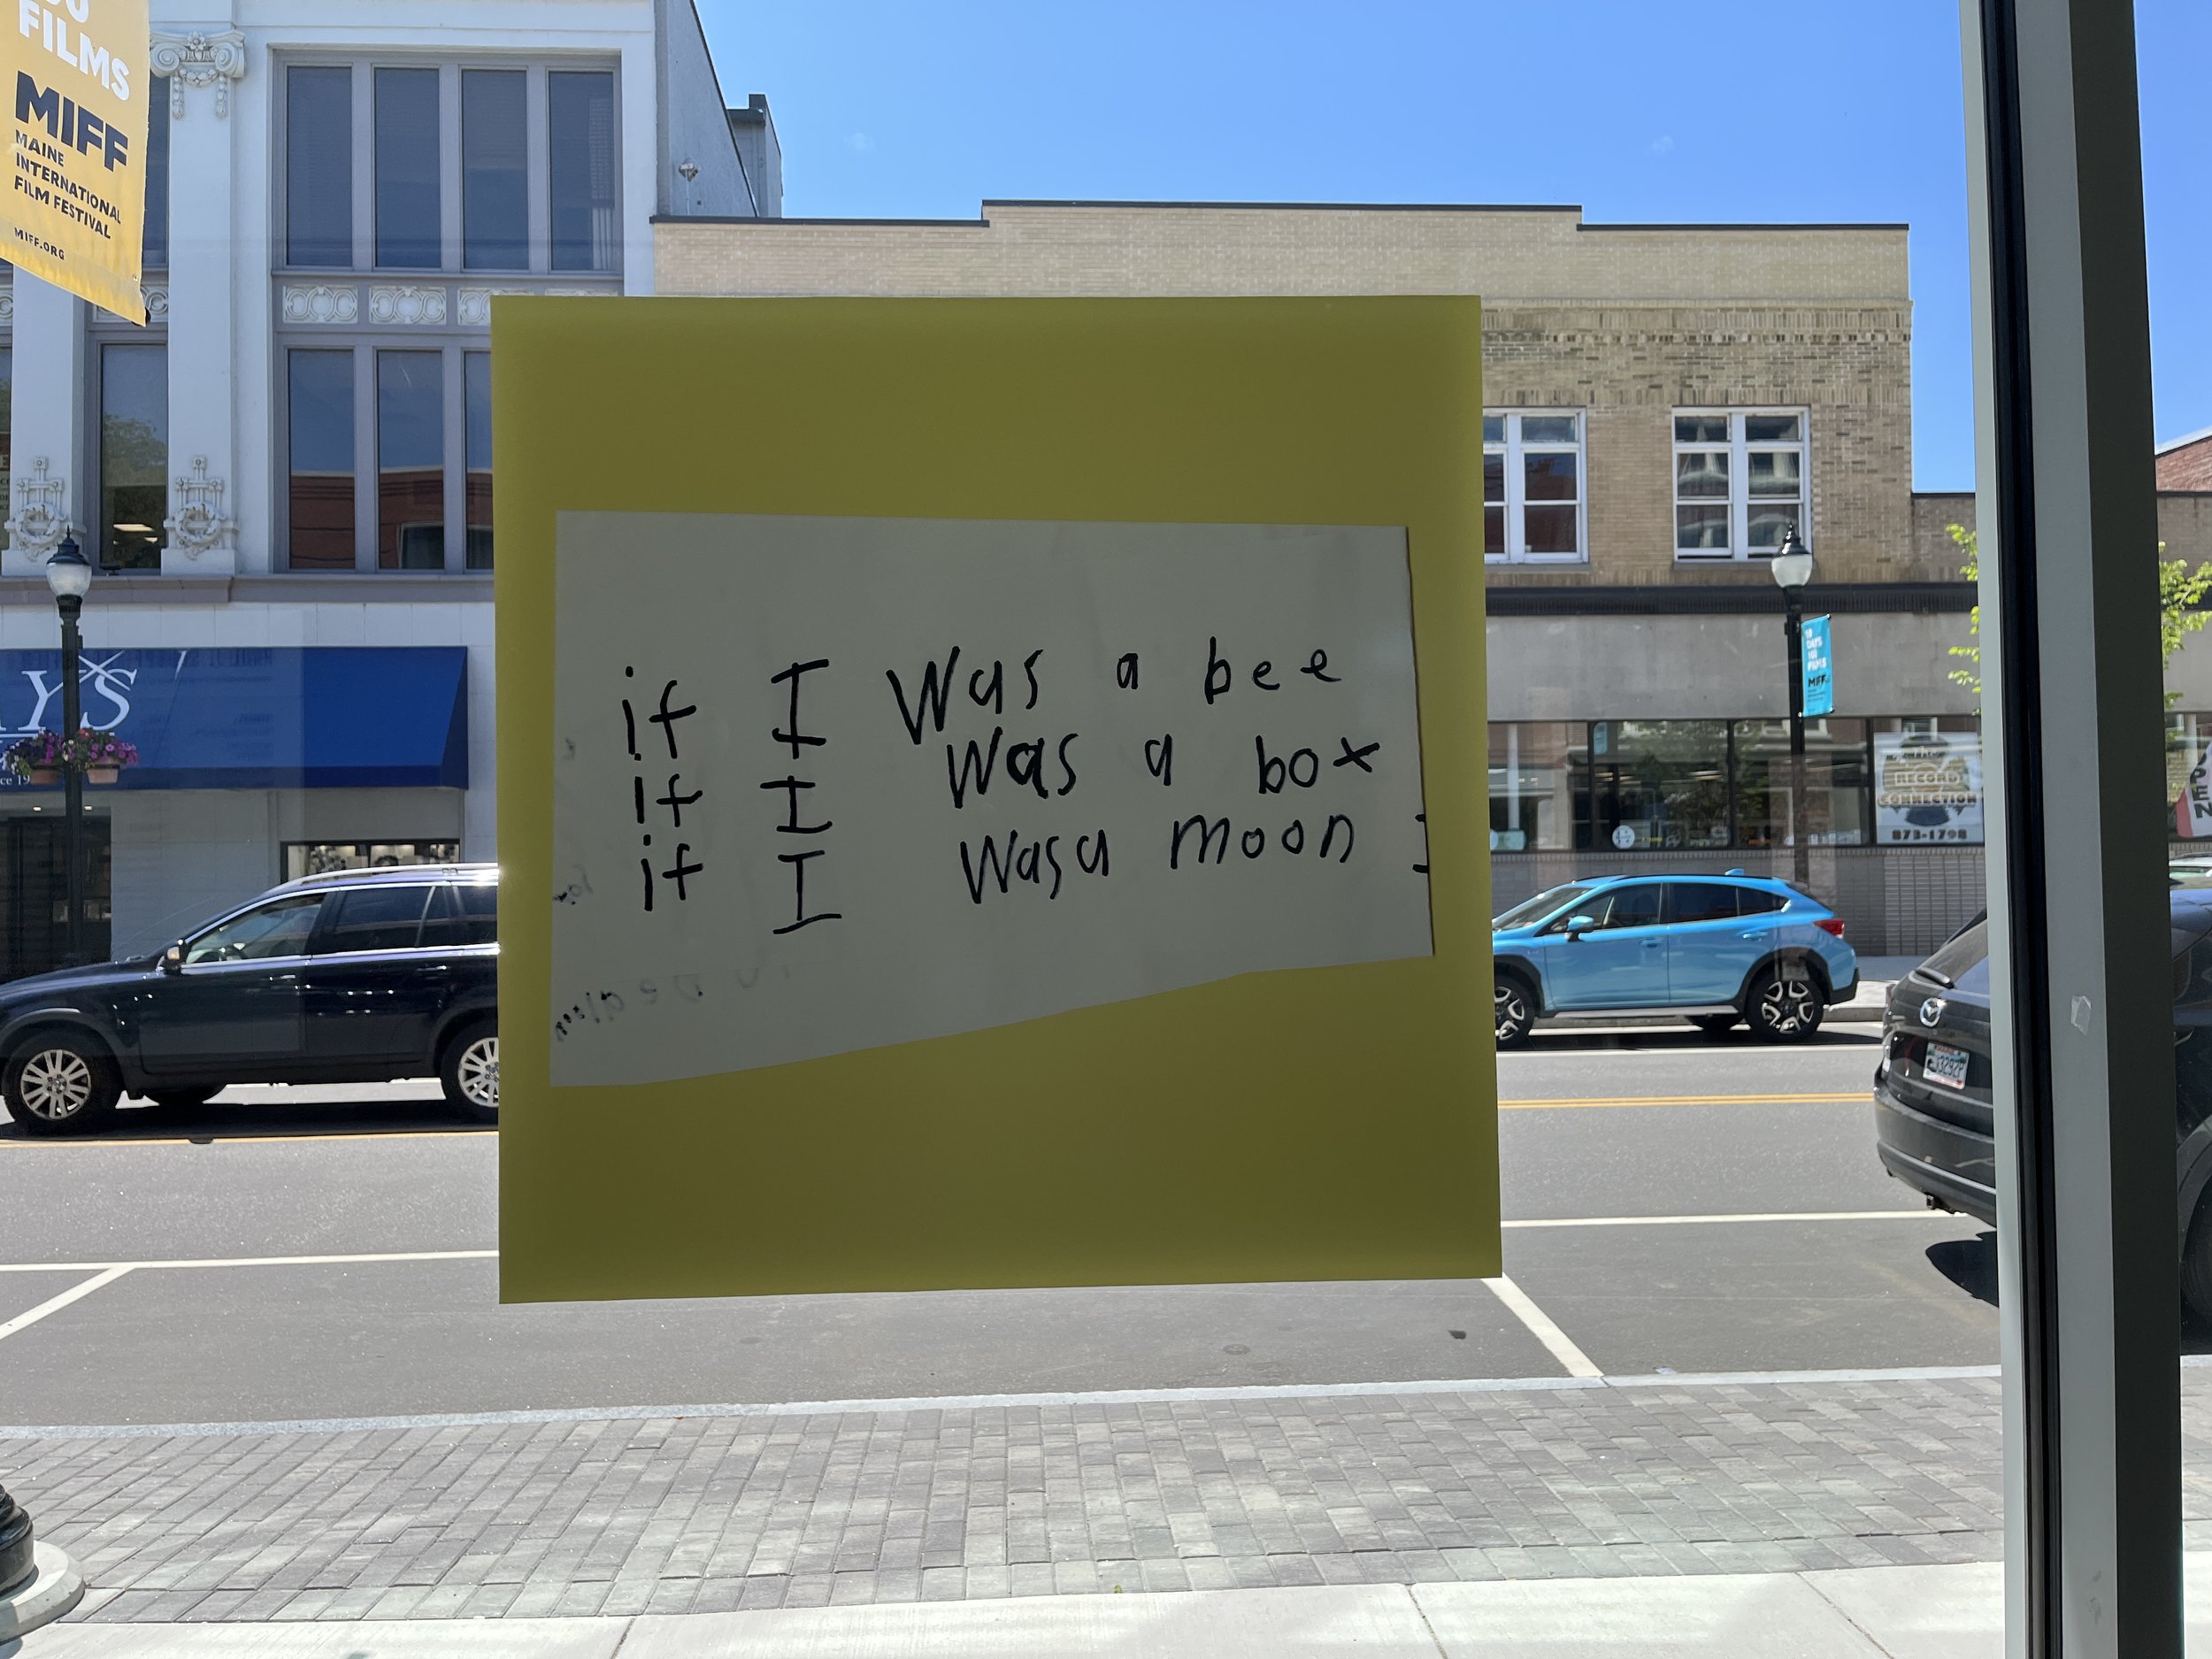 FILMS
MIFF
MAINE
INTERNATIONAL
FILM FESTIVAL
MIFF.ORG
if I Was a bee
if I Was a box
if I Was a moon
10
DAYS
100
FILMS
MIFF
RECORD
CONNECTION
873-1798
OPEN